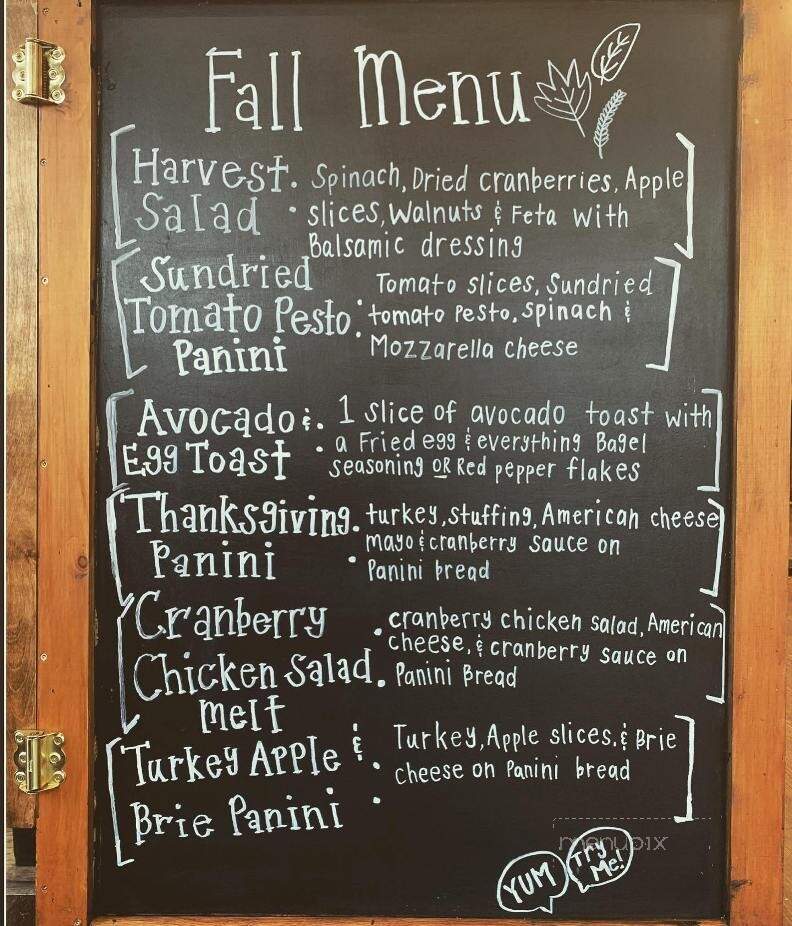 Fall Menu
Harvest Salad : Spinach, Dried cranberries, Apple
slices, Walnuts & Feta with
Balsamic dressing
Sundried Tomato Pesto Panini : Tomato slices, Sundried
tomato Pesto, spinach &
Mozzarella cheese
Avocado & Egg Toast : 1 slice of avocado toast with
a Fried egg & everything Bagel
seasoning OR Red pepper flakes
Thanksgiving Panini : turkey, stuffing, American cheese
mayo & cranberry sauce on
Panini bread
Cranberry Chicken Salad Melt : cranberry chicken salad, American
cheese, & cranberry sauce on
Panini Bread
Turkey Apple & Brie Panini : Turkey, Apple slices, & Brie
cheese on Panini bread
menupix
YUM
Try Me!